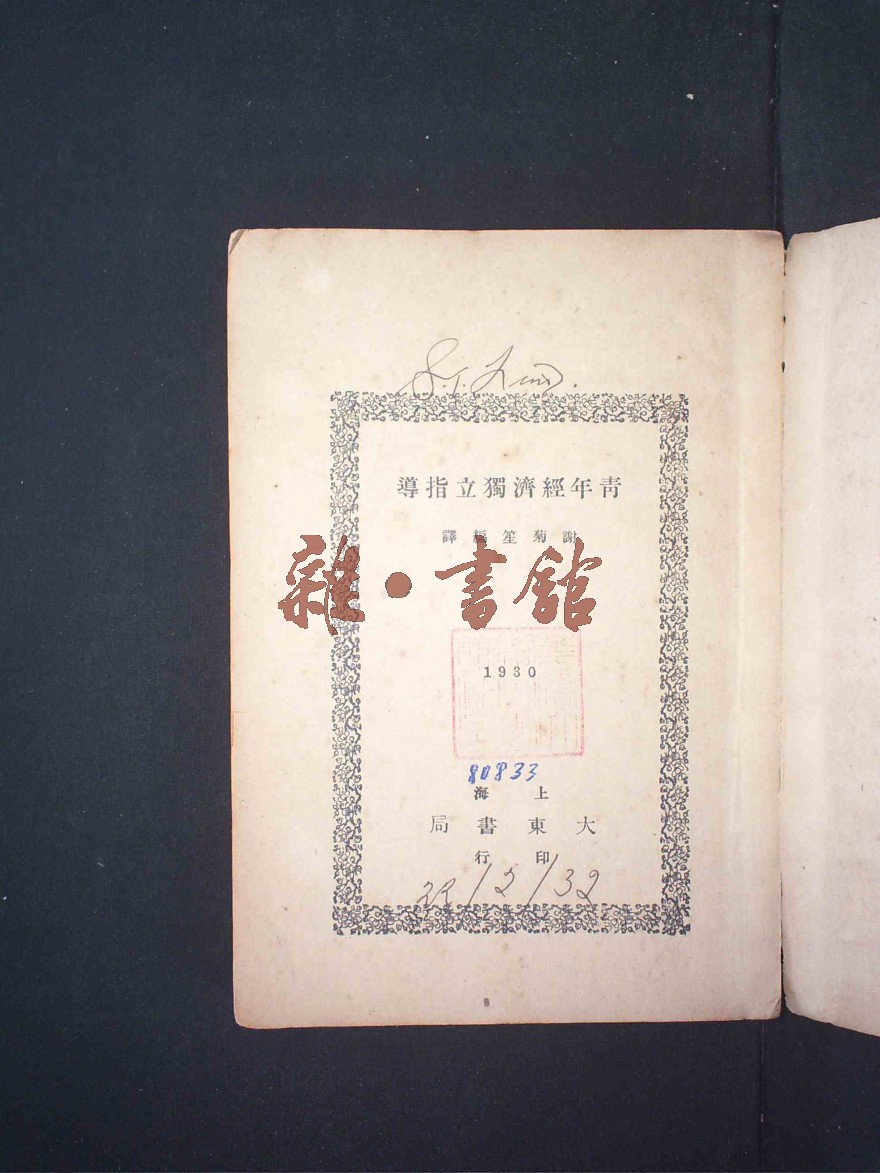 青年經濟獨立指導
謝菊笙編譯
雜·書館
1930
80833
上海
大東書局
印行
/2/32